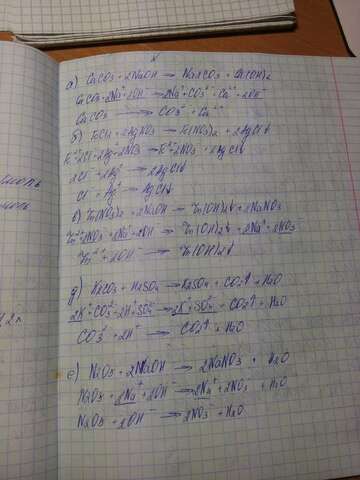 а) CaCO3 + 2NaOH → Na2CO3 + Ca(OH)2
CaCO3 + 2Na⁺ + 2OH⁻ → 2Na⁺ + CO3²⁻ + Ca²⁺ + 2OH⁻
CaCO3 → CO3²⁻ + Ca²⁺
б) FeCl2 + 2AgNO3 → Fe(NO3)2 + 2AgCl↓
Fe²⁺ + 2Cl⁻ + 2Ag⁺ + 2NO3⁻ → Fe²⁺ + 2NO3⁻ + 2AgCl↓
2Cl⁻ + 2Ag⁺ → 2AgCl↓
Cl⁻ + Ag⁺ → AgCl↓
в) Zn(NO3)2 + 2NaOH → Zn(OH)2↓ + 2NaNO3
Zn²⁺ + 2NO3⁻ + 2Na⁺ + 2OH⁻ → Zn(OH)2↓ + 2Na⁺ + 2NO3⁻
Zn²⁺ + 2OH⁻ → Zn(OH)2↓
д) K2CO3 + H2SO4 → K2SO4 + CO2↑ + H2O
2K⁺ + CO3²⁻ + 2H⁺ + SO4²⁻ → 2K⁺ + SO4²⁻ + CO2↑ + H2O
CO3²⁻ + 2H⁺ → CO2↑ + H2O
е) N2O5 + 2NaOH → 2NaNO3 + H2O
N2O5 + 2Na⁺ + 2OH⁻ → 2Na⁺ + 2NO3⁻ + H2O
N2O5 + 2OH⁻ → 2NO3⁻ + H2O